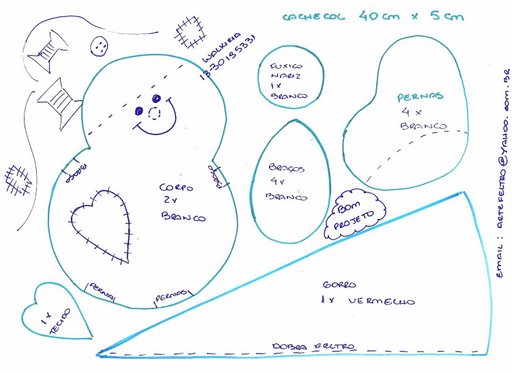 CACHECOL 40 cm x 5 cm
WALKIRIA
13-30195331
FUXICO
NARIZ
1 x
BRANCO
PERNAS
4 x
BRANCO
BRAÇOS
BRAÇOS
CORPO
2 x
BRANCO
BRAÇOS
4 x
BRANCO
BOM
PROJETO
PERNAS
PERNAS
1 x
TECIDO
GORRO
1 x VERMELHO
DOBRA FELTRO
EMAIL: ARTEFELTRO@YAHOO.COM.BR